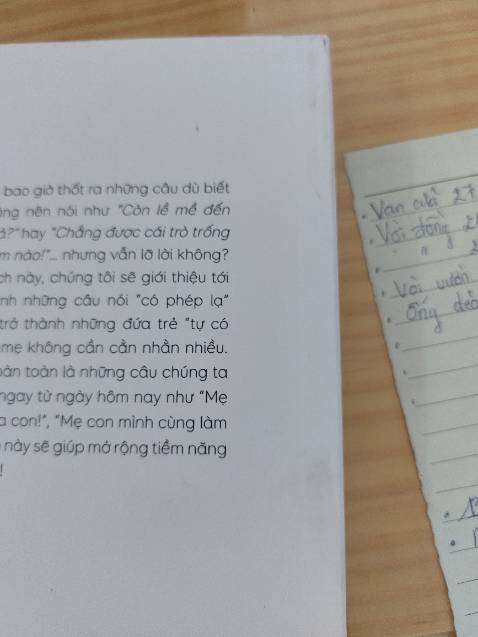 bao giờ thốt ra những câu dù biết
ông nên nói như "Còn lề mề đến
ả?" hay "Chẳng được cái trò trống
m nào!"... nhưng vẫn lỡ lời không?
ch này, chúng tôi sẽ giới thiệu tới
nh những câu nói "có phép lạ"
trở thành những đứa trẻ "tự có
mẹ không cần cằn nhằn nhiều.
oàn toàn là những câu chúng ta
ngay từ ngày hôm nay như "Mẹ
a con!", "Mẹ con mình cùng làm
này sẽ giúp mở rộng tiềm năng
!
Van 27
Vòi đồng
"
Vòi vườn
Ống